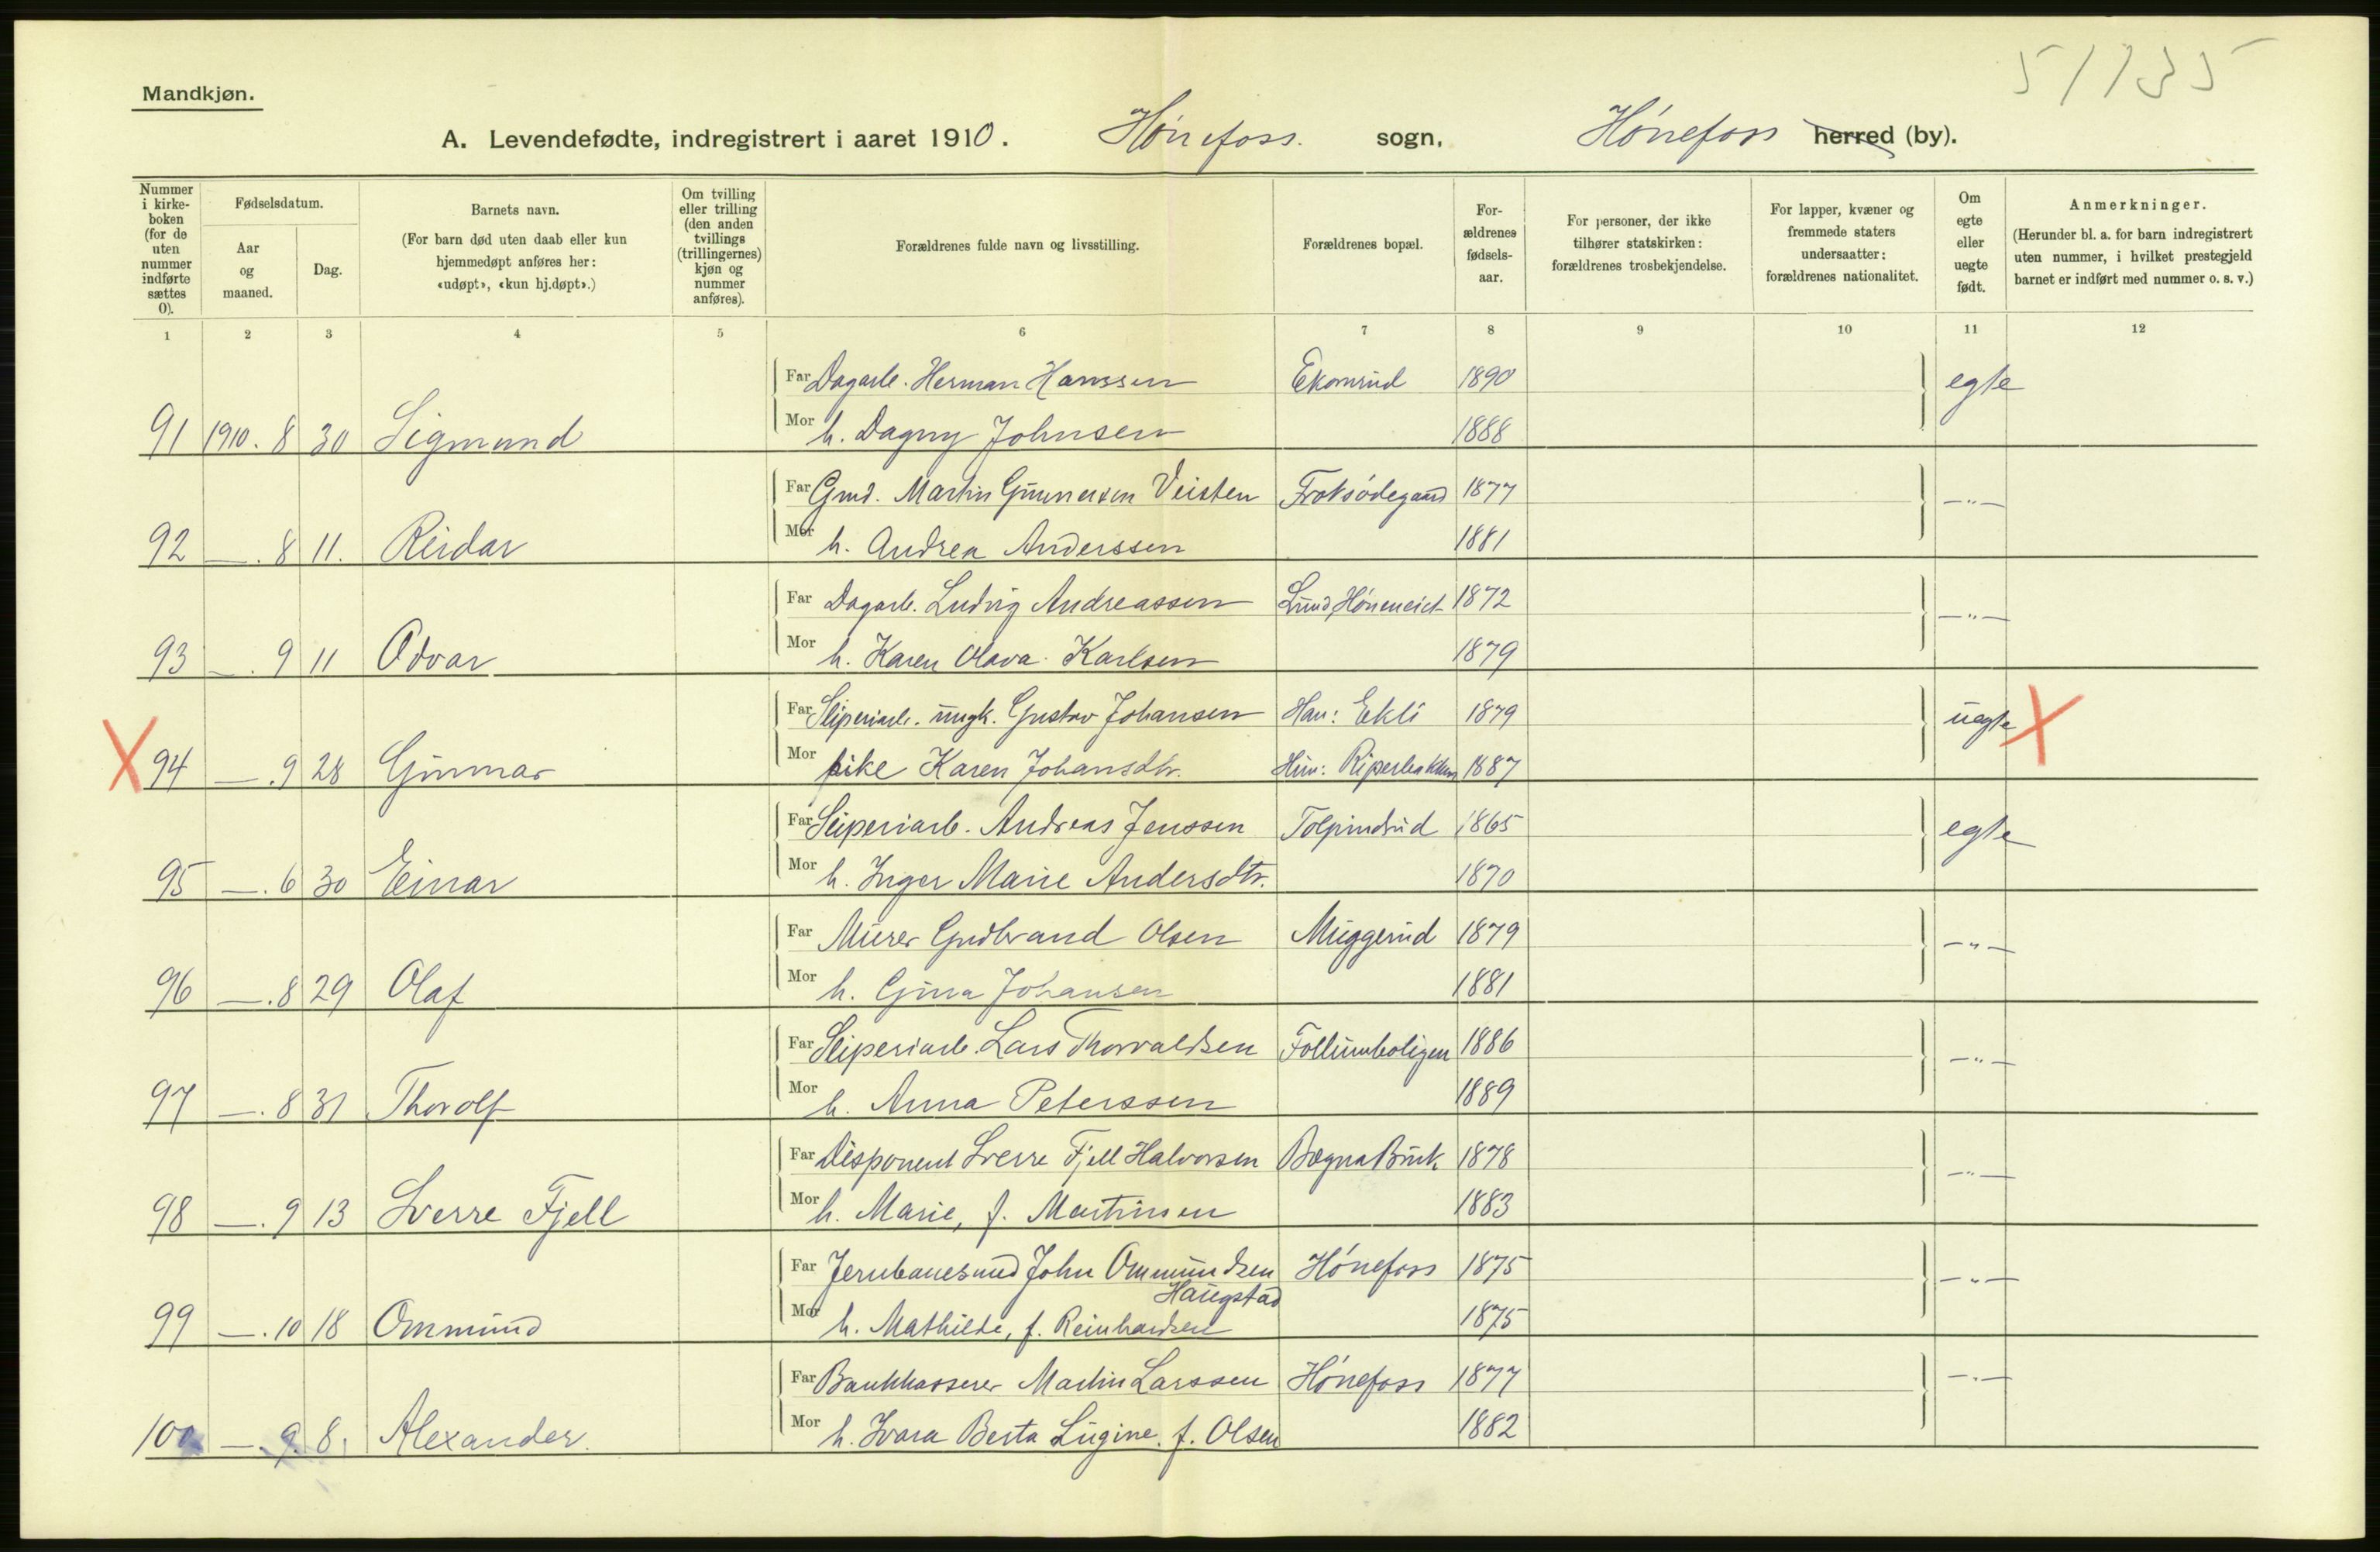 51135
Mandkjøn.
A. Levendefødte, indregistrert i aaret 1910. Hønefoss. sogn, Hønefoss herred (by).
Nummer i kirke-boken (for de uten nummer indførte sættes 0).
Fødselsdatum.
Aar og maaned.
Dag.
Barnets navn.
(For barn død uten daab eller kun hjemmedøpt anføres her: «udøpt», «kun hj.døpt».)
Om tvilling eller trilling (den anden tvillings (trillingernes) kjøn og nummer anføres).
Forældrenes fulde navn og livsstilling.
Forældrenes bopæl.
For-ældrenes fødsels-aar.
For personer, der ikke tilhører statskirken: forældrenes trosbekjendelse.
For lapper, kvæner og fremmede staters undersaatter: forældrenes nationalitet.
Om egte eller uegte født.
Anmerkninger.
(Herunder bl. a. for barn indregistrert uten nummer, i hvilket prestegjeld barnet er indført med nummer o. s. v.)
1 2 3 4 5 6 7 8 9 10 11 12
Far Dagarb. Herman Hanssen Ekornrud 1890 egte
91 1910. 8 30 Sigmund Mor h. Dagny Johnsen 1888
Far Gmd. Martin Gunnersen Veisten 1877 —"—
92 —. 8 11. Reidar Mor h. Andrea Anderssen 1881
Far Dagarb. Ludvig Andreassen Lund, 1872 —"—
93 —. 9 11 Odvar Mor h. Karen Olava Karlsen 1879
Far Sliperiarb. ungk. Gustav Johansen Han: Ekli 1879 uegte X
X 94 —. 9 28 Gunnar Mor pike Karen Johansdtr. Hun: Riperbakken 1887
Far Sliperiarb. Andreas Jenssen Tolpinrud 1865 egte
95 —. 6 30 Einar Mor h. Inger Marie Andersdtr. 1870
Far Murer Gudbrand Olsen Muggerud 1879 —"—
96 —. 8 29 Olaf Mor h. Gina Johansen 1881
Far Sliperiarb. Lars Thorvaldsen Follumboligen 1886 —"—
97 —. 8 31 Thorolf Mor h. Anna Peterssen 1889
Far Disponent Sverre Fjell Halvorsen Bægna Bruk 1878 —"—
98 —. 9 13 Sverre Fjell Mor h. Marie, f. Martinsen 1883
Far Jernbanesmed John Ommundsen Hønefoss 1875 —"—
Haugstad
99 —. 10 18 Ommund Mor h. Mathilde, f. Reinhardsen 1875
Far Bankkasserer Martin Larssen Hønefoss 1877 —"—
100 —. 9. 8. Alexander. Mor h. Ivara Berta Lugine. f. Olsen 1882